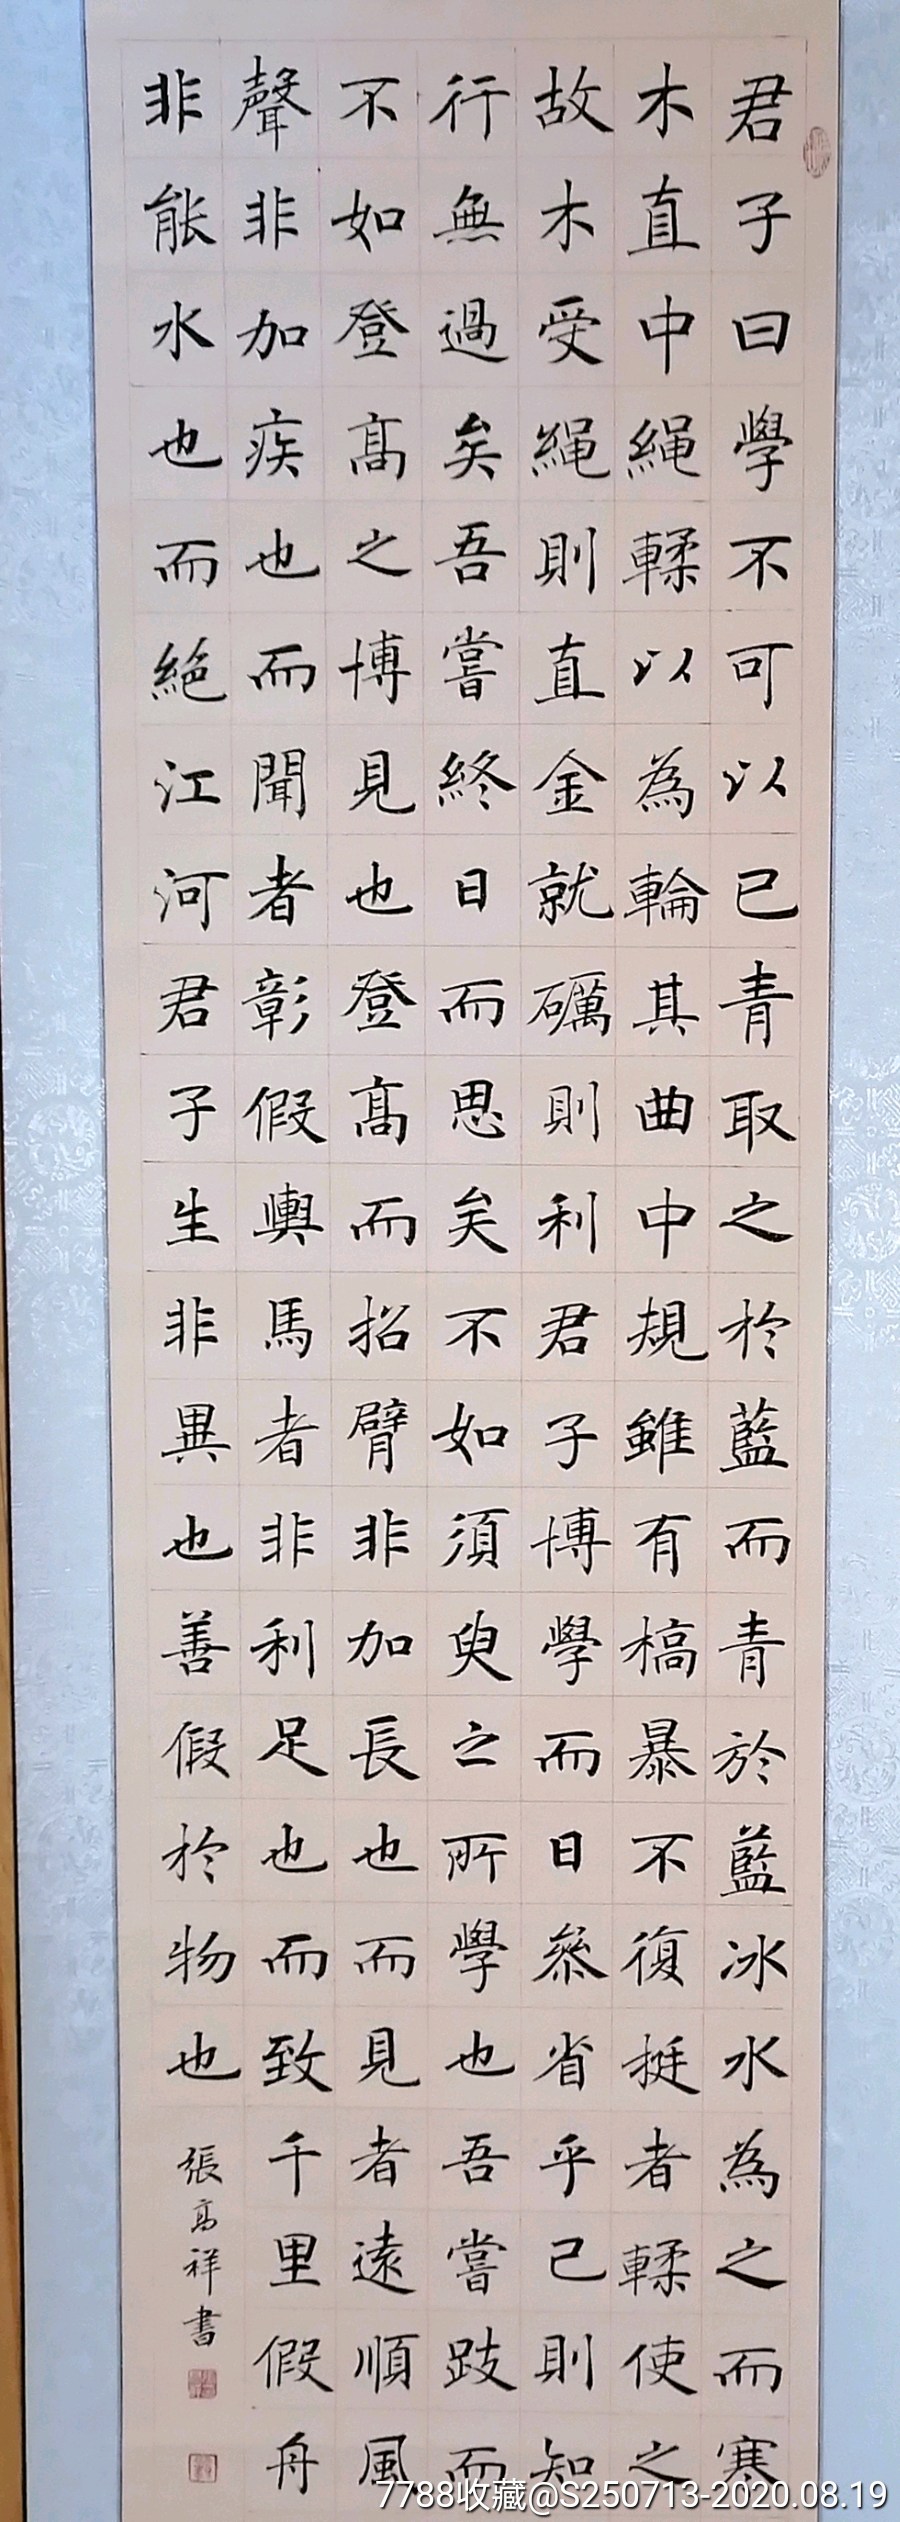 君子曰學不可以已青取之於藍而青於藍冰水為之而寒
木直中繩輮以為輪其曲中規雖有槁暴不復挺者輮使之
故木受繩則直金就礪則利君子博學而日參省乎己則知
行無過矣吾嘗終日而思矣不如須臾之所學也吾嘗跂而
不如登高之博見也登高而招臂非加長也而見者遠順風
聲非加疾也而聞者彰假輿馬者非利足也而致千里假舟
非能水也而絕江河君子生非異也善假於物也
張高祥書
7788收藏@S250713-2020.08.19